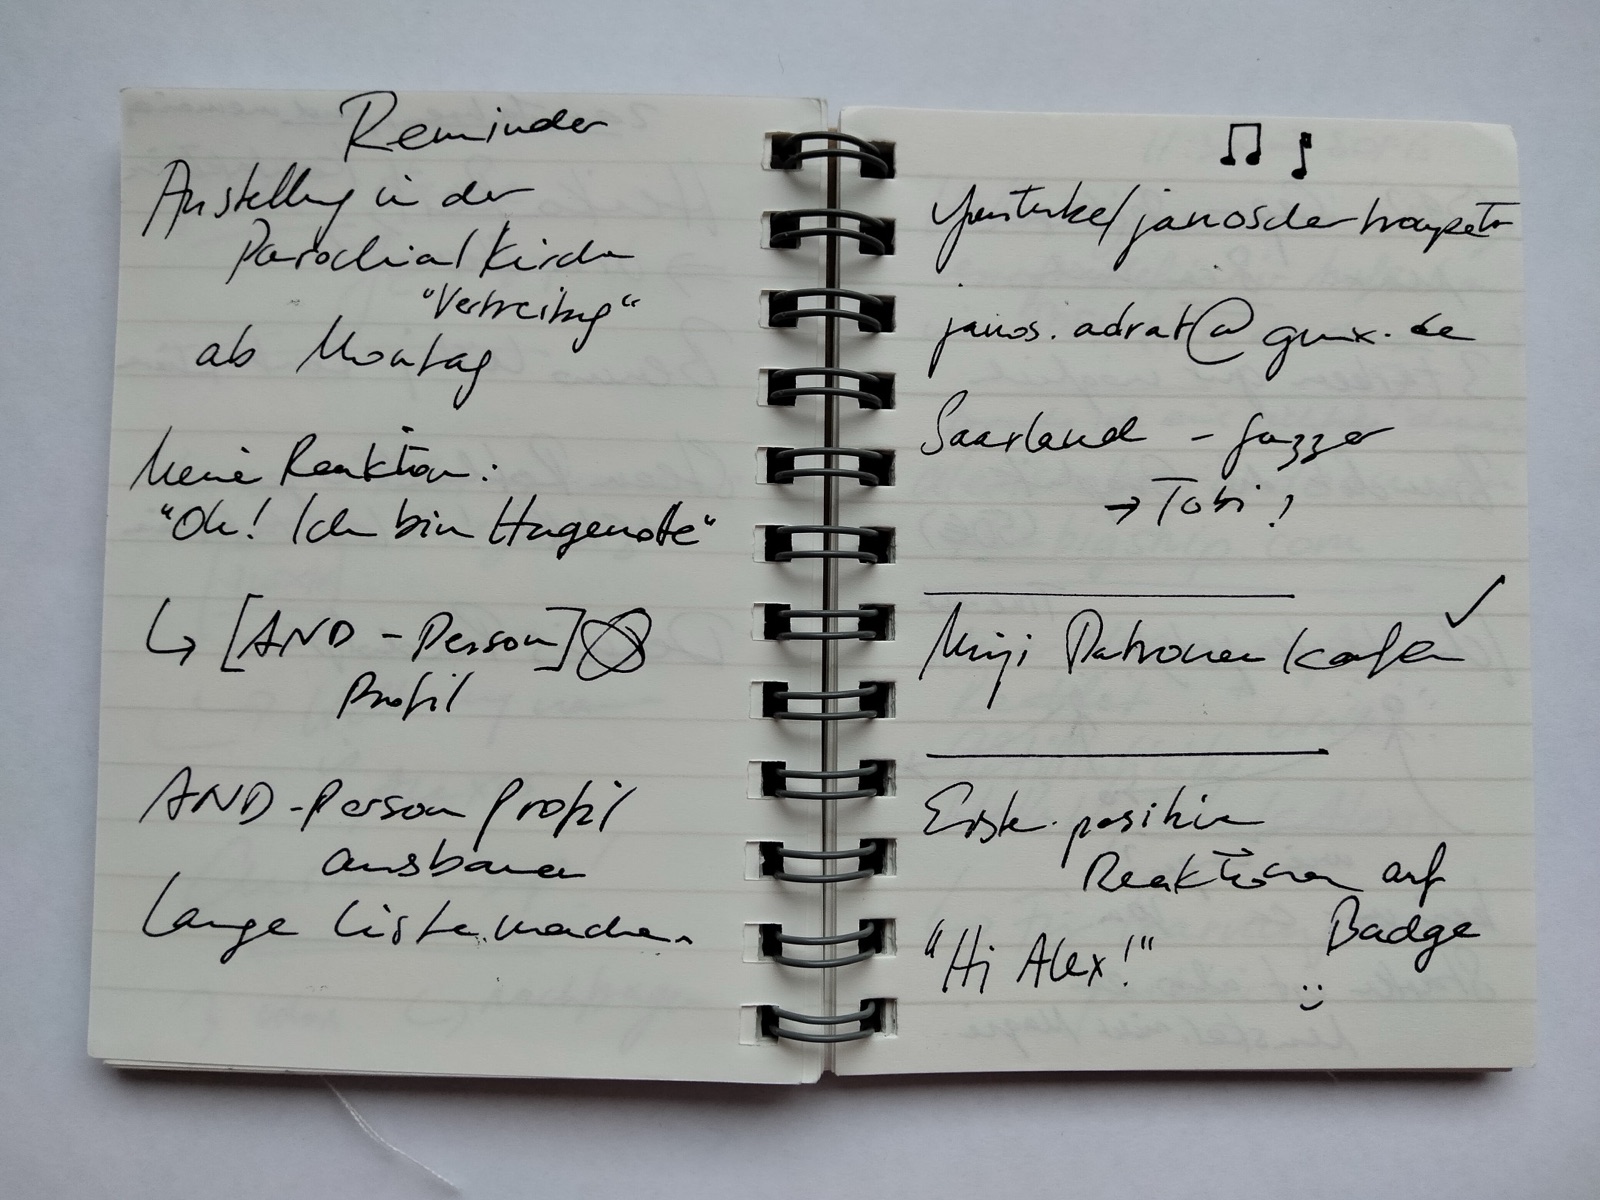 Reminder
Ausstellung in der
Parochialkirche
"Vertreibung"
ab Montag
Meine Reaktion:
"Oh! Ich bin Hugenotte"
↳ [AND-Person]
Profil
AND-Person Profil
ausbauen
Lange Liste machen
♫ ♪
/janosdertrompeter
janos.adrat@gmx.de
Saarland - Jazzer
→ Tobi?
Mini Patronen kaufen ✓
Erste positive
Reaktionen auf
Badge
"Hi Alex!"